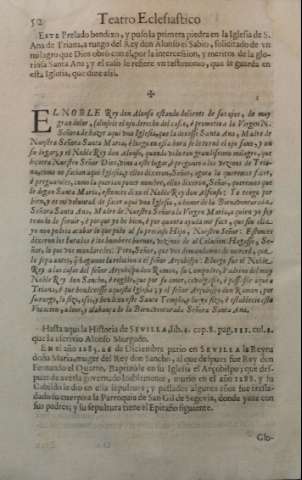 52 Teatro Eclesiastico
ESTE Prelado bendixo, y puso la primera piedra en la Iglesia de S.
Ana de Triana, a ruego del Rey don Alonso el Sabio, solicitado de vn
milagro que Dios obró con él, por la intercession, y meritos de la glo-
riosa Santa Ana, y el caso lo refiere vn testimonio, que se guarda en
esta Iglesia, que dize assi.
EL NOBLE Rey don Alonso estando doliente de sus ojos, de muy
gran dolor, saliósele el ojo derecho del casco, è prometiò a la Virgen N.
Señora de hazer aqui vna Iglesia, que la dixesse Santa Ana, Madre de
Nuestra Señora Santa Maria, è luego en essa hora se le tornò el ojo sano, y en
su lugar, y el Noble Rey don Alonso, quando vido tan grandissimo milagro, que
Nuestro Señor Dios, vino a este lugar, è preguntò a los vezinos de Tria-
na como no facian aqui Iglesia, y ellos dixeron, Señor, agora la queremos facer,
è preguntòles, como la querian poner nombre, ellos dixeron, Señor, queremos que
se diga Santa Maria, estonces dixo el Noble Rey don Alfonso: Yo tengo por
bien, y es mi voluntad de facer aqui vna Iglesia, a honor de la Bienaventurada
Señora Santa Ana, Madre de Nuestra Señora la Virgen Maria, a quien yo soy
Señor. Estonces
dixeron los jurados è los hombres buenos, vezinos de al Collacion
Señor, lo que vos mandaredes: Pero, Señor, que vos demandamos de merced, que
Noble
Rey a las casas del señor Arçobispo don Remon, su Compadre, Padrino del muy
Noble Rey don Sancho, è rogòle, que por su amor,
Triana, è que bendixesse aquesta Iglesia: y el señor Arçobispo don Remon, por
su ruego, lo fizo, assi, y bendixo este Santo Templo,
Vocacion, a loor, y alabança de la Bienaventurada Señora Santa Ana.
Hasta aqui la Historia de SEVILLA, lib. 4. cap. 8. pag. 111. col. 2.
que la escriviò Alonso Morgado.
EN el año 1285. 26 de Diziembre pariò en SEVILLA la Reyna
doña Maria, muger del Rey don Sancho, al que despues fue Rey don
Fernando el Quarto, Baptizòle en su Iglesia el Arçobispo; que des-
pues de averla governado loablemente, muriò en el año 1288. y su
Cabildo le diò en ella sepultura; y passados algunos años fue trasla-
dado su cuerpo a la Parroquia de San Gil de Segovia, donde yaze con
sus padres; y su sepultura tiene el Epitafio siguiente.
Glo-